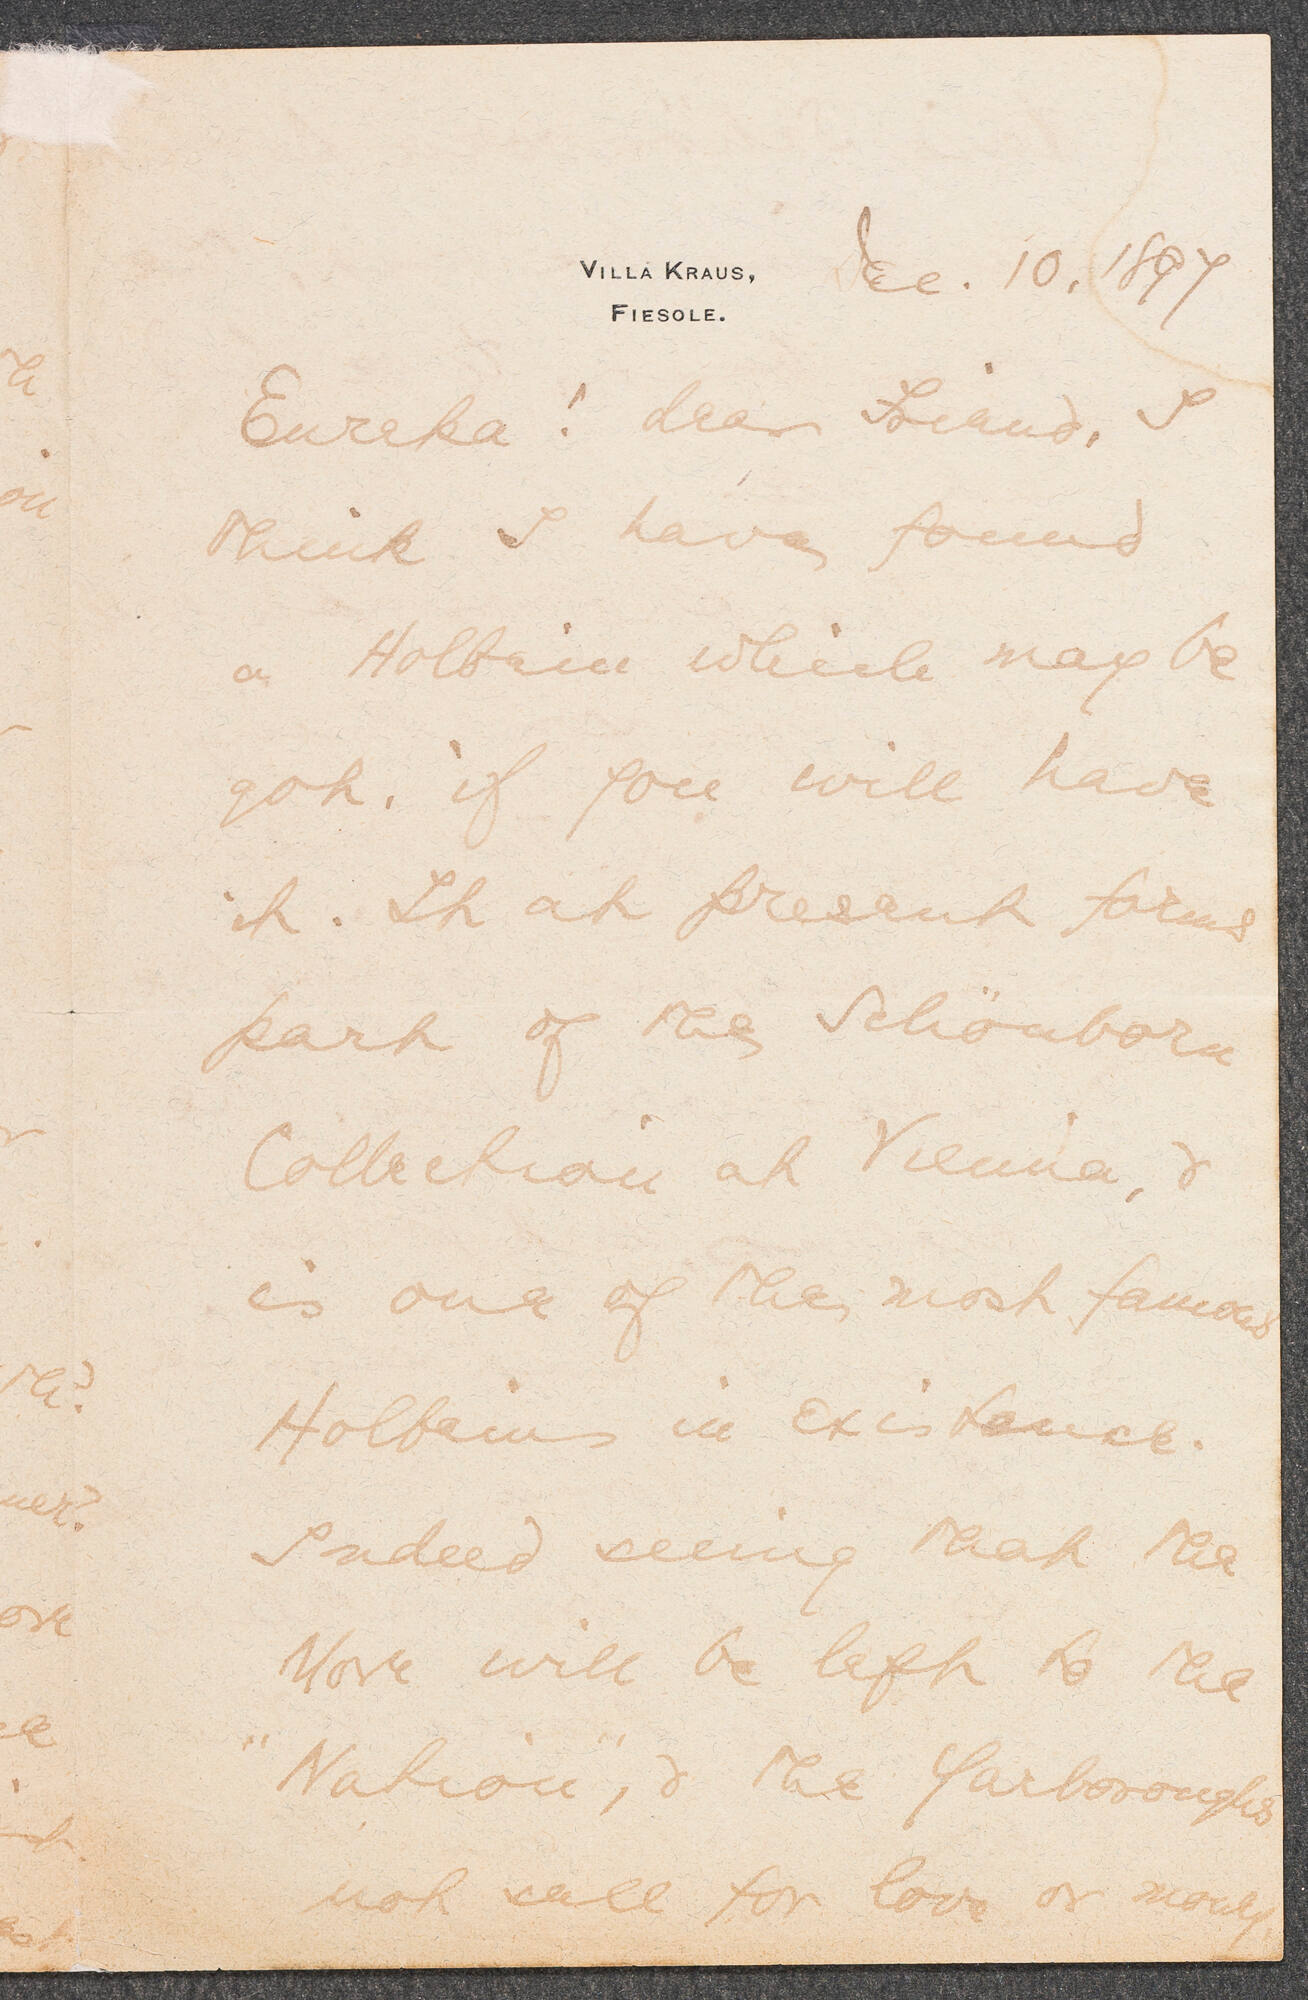 VILLA KRAUS,
FIESOLE.
Dec. 10, 1897
Eureka! dear Friend, I
think I have found
a Holbein which may be
got, if you will have
it. It at present forms
part of the Schönborn
Collection at Vienna, &
is one of the most famous
Holbeins in existence.
Indeed seeing that the
More will be left to the
"Nation", & the Yarboroughs
not sell for love or money,